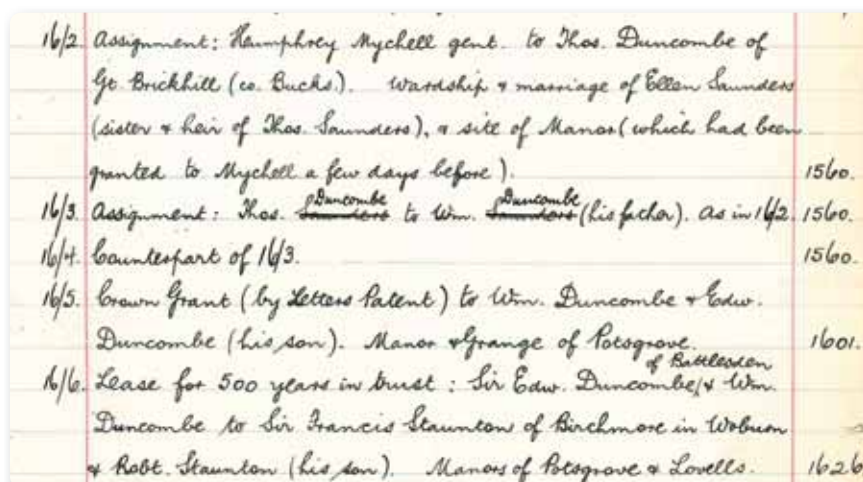 16/2 Assignment: Humphrey Mychell gent. to Thos. Duncombe of
Gt. Brickhill (co. Bucks.). Wardship & marriage of Ellen Saunders
(sister & heir of Thos. Saunders), & site of Manor (which had been
granted to Mychell a few days before). 1560.
16/3. Assignment: Thos. Saunders Duncombe to Wm. Saunders Duncombe (his father). As in 16/2. 1560.
16/4. Counterpart of 16/3. 1560.
16/5. Crown Grant (by Letters Patent) to Wm. Duncombe & Edw.
Duncombe (his son). Manor & Grange of Potsgrove. 1601.
16/6. Lease for 500 years in trust: Sir Edw. Duncombe of Battlesden & Wm.
Duncombe to Sir Francis Staunton of Birchmore in Woburn
& Robt. Staunton (his son). Manors of Potsgrove & Lovells. 1626